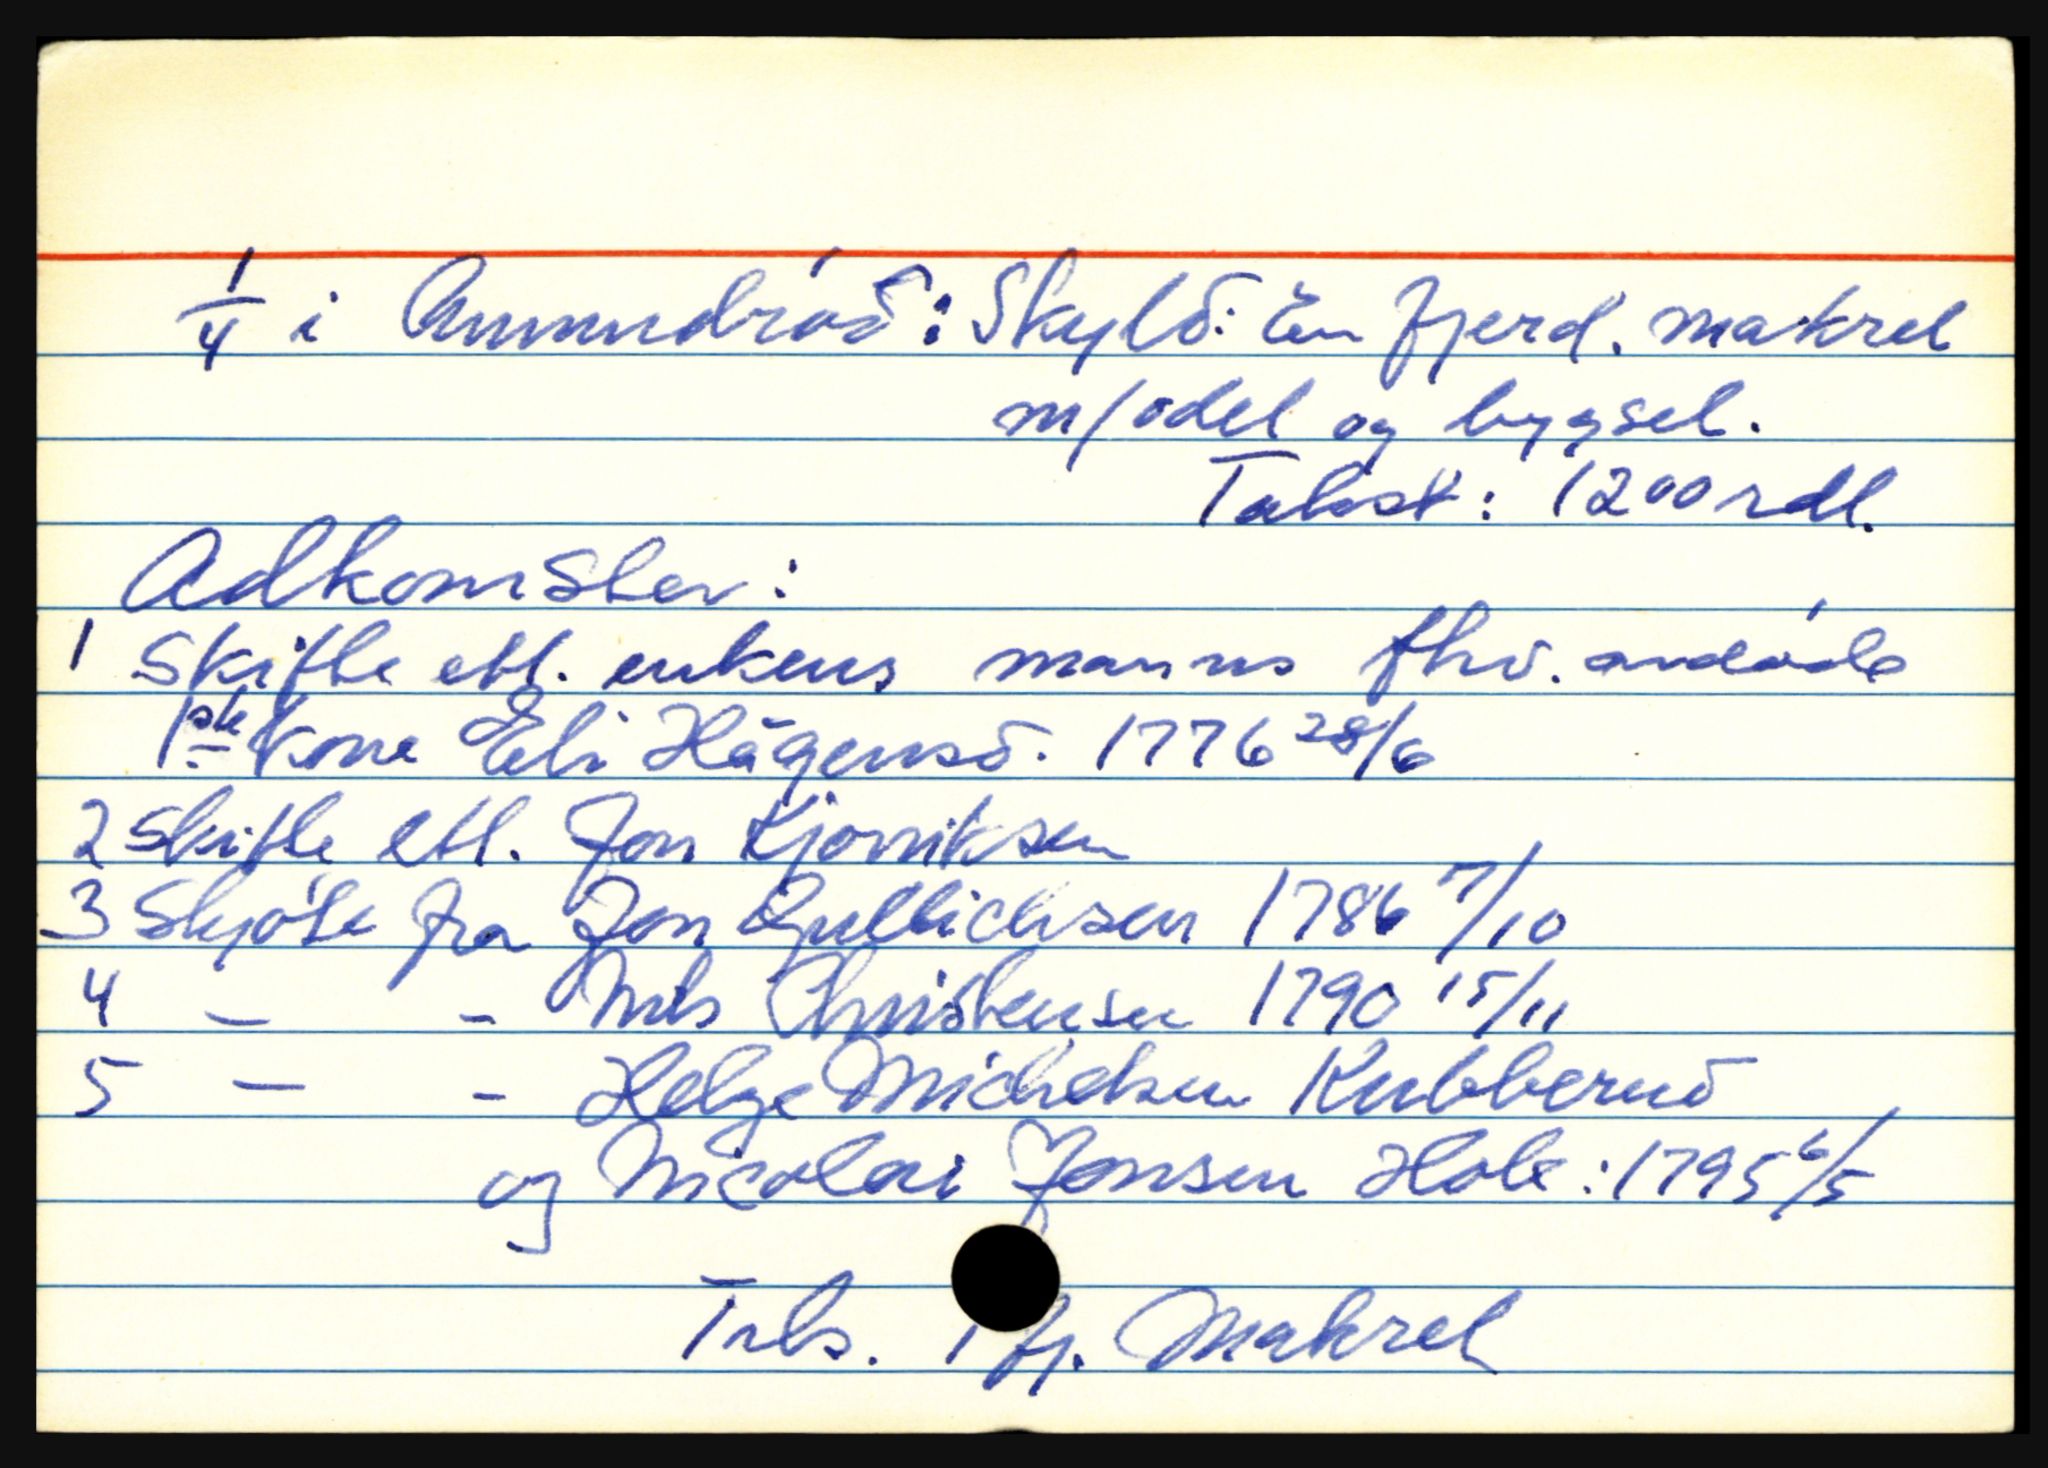 1/4 i Amundrød: Skyld: En fjerd. makrel
m/odel og bygsel.
Takst: 1200 rdl.
Adkomster:
1 Skifte ett. enkens manns fhv. avdøde
1ste kone Eli Hågensd. 1776 28/6
2 Skifte ett. Jon
3 Skjøte fra Jon Gullichsen 1786 7/10
4 — - Nils Christensen 1790 15/11
5 — - Helge Michelsen Kubberud
og Nicolai Jonsen Hole: 1795 6/5
1 fj. Makrel